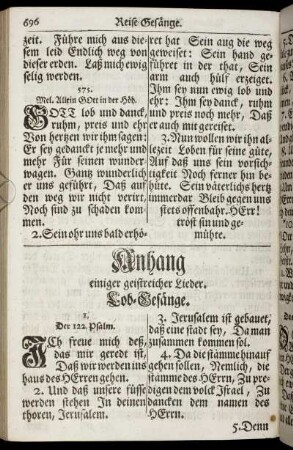 696 Reise-Gesänge.
zeit. Führe mich aus die-
sem leid Endlich weg von
dieser erden. Laß mich ewig
selig werden.
575.
Mel. Allein GOtt in der Höh.
GOTT lob und danck,
ruhm, preis und ehr
Von hertzen wir ihm sagen:
Er sey gedanckt je mehr und
mehr Für seinen wunder-
wagen. Gantz wunderlich
er uns geführt, Daß auf
den weg wir nicht verirrt,
Noch sind zu schaden kom-
men.
2. Sein ohr uns bald erhö-
ret hat Sein aug die weg
geweiset: Sein hand ge-
führet in der that, Sein
arm auch hülf erzeiget.
Ihm sey nun ewig lob und
ehr: Ihm sey danck, ruhm
und preis noch mehr, Daß
er auch mit gereiset.
3. Nun wollen wir ihn al-
lezeit Loben für seine güte,
Auf daß uns sein vorsich-
tigkeit Noch ferner hin be-
hüte. Sein väterlichs hertz
immerdar Bleib gegen uns
stets offenbahr. HErr!
tröst sin und ge-
müthe.
Anhang
einiger geistreicher Lieder.
Lob-Gesänge.
1.
Der 122. Psalm.
ICh freue mich deß,
das mir geredt ist,
Daß wir werden ins
haus des HErren gehen.
2. Und daß unsere füsse
werden stehen In deinen
thoren, Jerusalem.
3. Jerusalem ist gebauet,
daß eine stadt sey, Da man
zusammen kommen sol.
4. Da die stämme hinauf
gehen sollen, Nemlich, die
stämme des HErrn, Zu pre-
digen dem volck Israel, Zu
dancken dem namen des
HErrn.
5. Denn